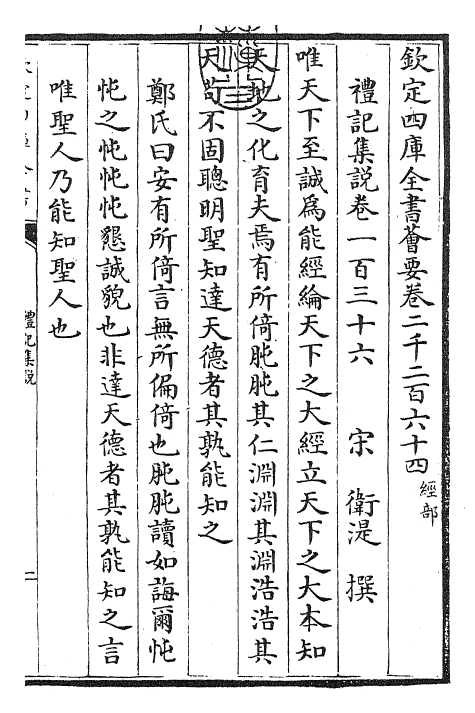 欽定四庫全書薈要卷二千二百六十四經部
禮記集説卷一百三十六 宋 衛湜 撰
唯天下至誠爲能經綸天下之大經立天下之大本知
天地之化育夫焉有所倚肫肫其仁淵淵其淵浩浩其
天苟不固聰明聖知達天德者其孰能知之
鄭氏曰安有所倚言無所偏倚也肫肫讀如誨爾忳
忳之忳忳忳懇誠貌也非達天德者其孰能知之言
唯聖人乃能知聖人也
禮記集説